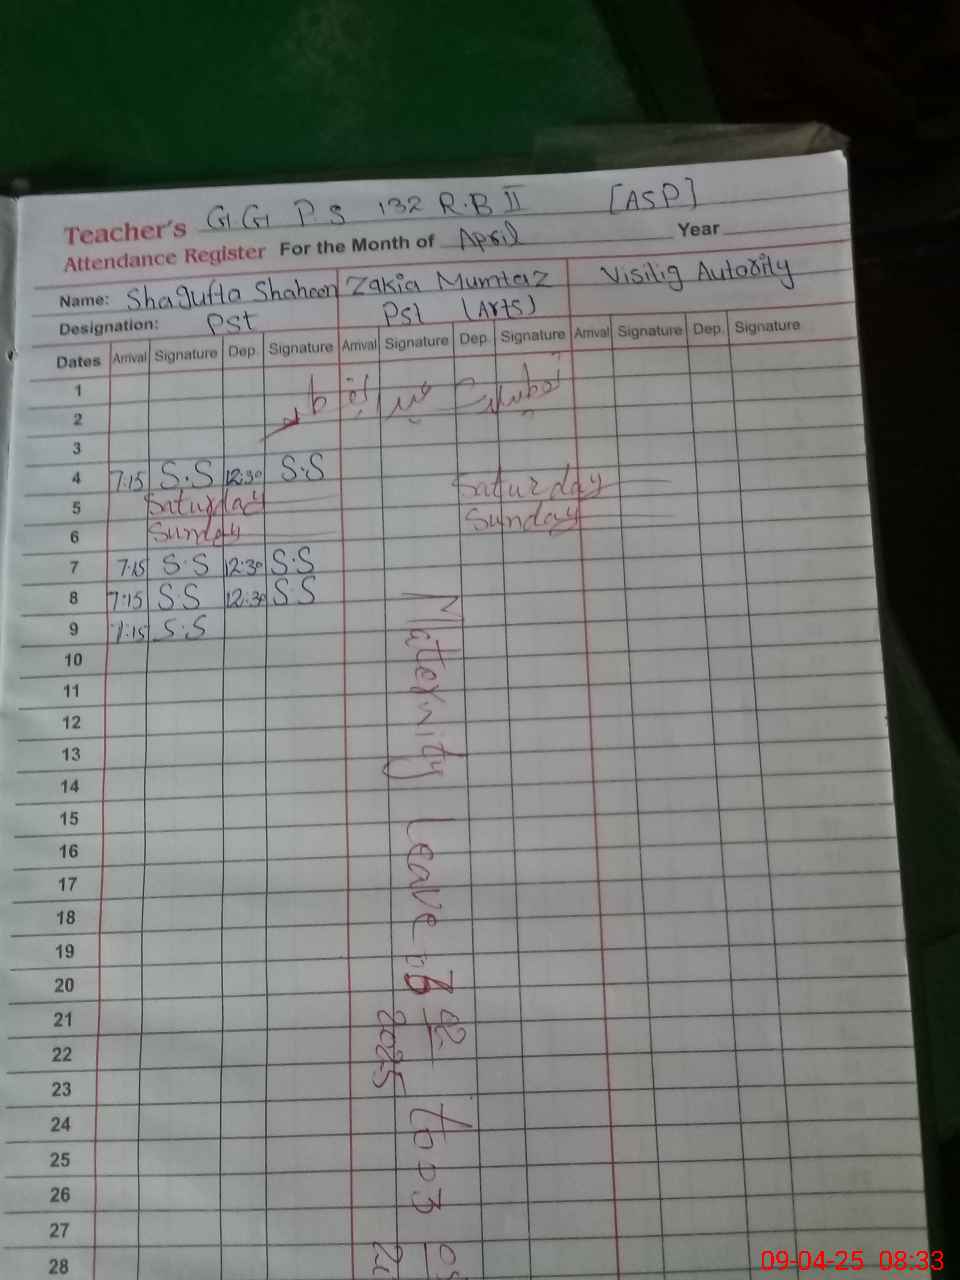 Teacher's G.G.P.S 132 R.B II [ASP]
Attendance Register For the Month of April Year
Name: Shagufta Shaheen Zakia Mumtaz Visilig Autorily
Designation: Pst Pst (Arts)
Dates Arrival Signature Dep. Signature Arrival Signature Dep. Signature Arrival Signature Dep. Signature
1
2
3
4 7:15 S.S 12:30 S.S
5 Saturday Saturday
6 Sunday Sunday
7 7:15 S.S 12:30 S.S
8 7:15 S.S 12:30 S.S
9 7:15 S.S
10
11
12
13
14
15
16
17
18
19
20
21
22
23
24
25
26
27
28
Maternity leave
02
2025
to 03
09-04-25 08:33